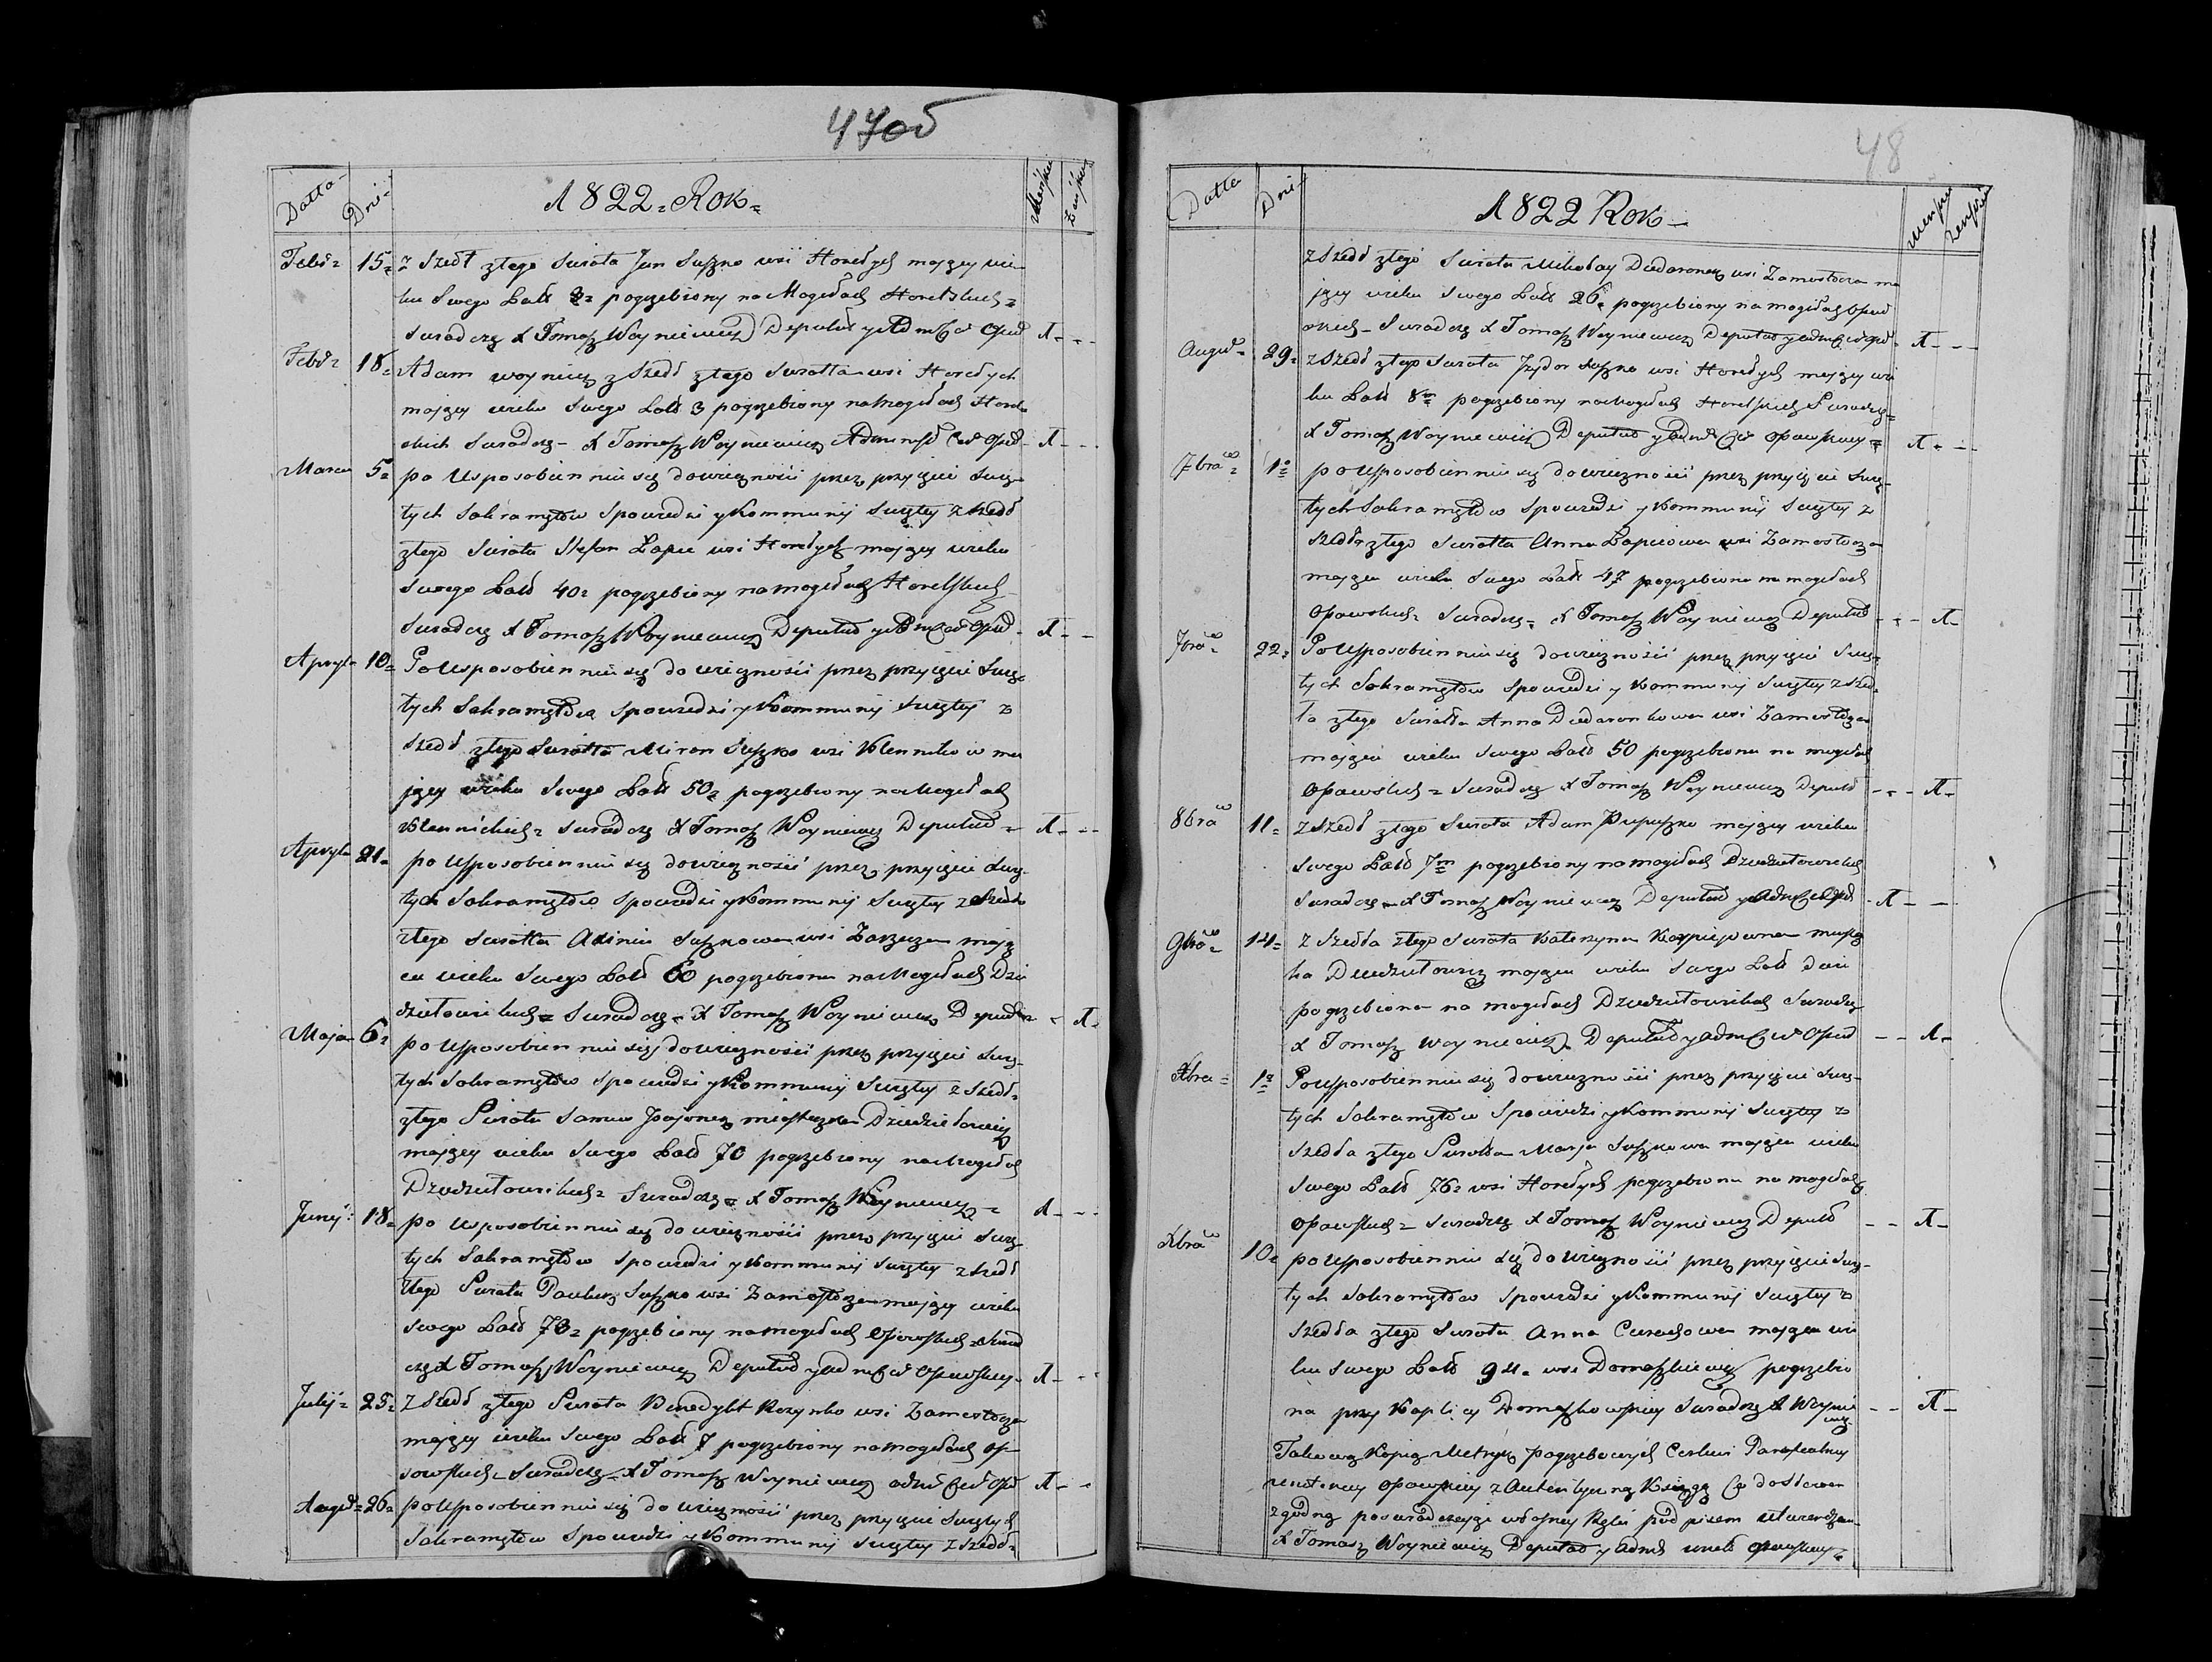 470б
Datta Dni 1822 Rok Męski Żeński
Febr 15 z Szedł ztego Swiata Jan Suszko wsi Horodych maiący wie
ku Swego Latt 2 pogrzebiony na Mogiłach Horelskich
Swiadczę X Tomasz Woyniewicz Deputat y Adm Opow 1
Febr 18 Adam woynicz z Szedł ztego Swiatta wsi Horodych
maiący wieku Swego Latt 3 pogrzebiony na Mogiłach Horel
skich Swiadczę X Tomasz Woyniewicz Administ 1
Marca 5 po Usposobienniu się do wieczności przez przyięcie Swię
tych Sakramętow Spowiedzi y Kommunij Swiętey z szedł
ztego Swiata Stefan Łapic wsi Horodych maiący wieku
Swego Latt 40 pogrzebiony na mogiłach Horelskich
Swiadczę X Tomasz Woyniewicz Deputat 1
Apryla 10 Po Usposobienniu się do wieczności przez przyięcie Swię
tych Sakramętow Spowiedzi y Kommunij Swiętey z
Szedł ztego Swiatta Miron Suszko wsi Klennikow ma
iący wieku Swego Latt 50 pogrzebiony na Mogiłach
Klennickich Swiadczę X Tomasz Woyniewicz Deputat 1
Apryla 21 po Usposobienniu się do wieczności przez przyięcie Swię
tych Sakramętow Spowiedzi y Kommunij Swiętey z Szedła
ztego Swiatta Suszkowa wsi Zarzecza maią
ca wieku Swego Latt 60 pogrzebiona na Mogiłach Dzie
dziłowickich Swiadczę X Tomasz Woyniewicz Deputat 1
Maja 6 po Usposobienniu się do wieczności przez przyięcie Swię
tych Sakramętow Spowiedzi y Kommunij Swiętey z Szedł
ztego Swiata miasteczka Dziedziłowicz
maiący wieku Swego Latt 70 pogrzebiony na Mogiłach
Dziedziłowickich Swiadczę X Tomasz Woyniewicz 1
Junij 18 po Usposobienniu się do wieczności przez przyięcie Swię
tych Sakramętow Spowiedzi y Kommunij Swiętey z szedł
ztego Swiata Suszko wsi Zamostocza maiący wieku
Swego Latt 73 pogrzebiony na Mogiłach Swiad
czę X Tomasz Woyniewicz Deputat 1
Julij 25 z Szedł ztego Swiata Benedykt wsi Zamostocza
maiący wieku Swego Latt 7 pogrzebiony na Mogiłach Op
Swiadczę X Tomasz Woyniewicz 1
August 26 po Usposobienniu się do wieczności przez przyięcie Swiętych
Sakramętow Spowiedzi y Kommunij Swiętey z Szedł
48
Datta Dni 1822 Rok Męski Żeński
z Szedł ztego Swiata Mikołay Dudaronek wsi Zamostocza ma
iący wieku Swego Latt 26 pogrzebiony na mogiłach Opow
skich Swiadczę X Tomasz Woyniewicz Deputat 1
August 29 z Szedł ztego Swiata Izydor Suszko wsi Horodych maiący wie
ku Latt 8m pogrzebiony na Mogiłach Horelskich Swiadczę
X Tomasz Woyniewicz Deputat 1
7bra 1 po Usposobienniu się do wieczności przez przyięcie Swię
tych Sakramętow Spowiedzi y Kommunij Swiętey z
Szedła ztego Swiatta Anna Łapiciowa wsi Zamostocza
maiąca wieku Swego Latt 47 pogrzebiona na mogiłach
Opowskich Swiadczę X Tomasz Woyniewicz Deputat 1
7bra 22 Po Usposobienniu się do wieczności przez przyięcie Swię
tych Sakramętow Spowiedzi y Kommunij Swiętey z szed
ła ztego Swiatta Anna Dudaronkowa wsi Zamostocza
maiąca wieku Swego Latt 50 pogrzebiona na mogiłach
Opowskich Swiadczę X Tomasz Woyniewicz Deputat 1
8bra 11 z Szedł ztego Swiata Adam maiący wieku
Swego Latt 7m pogrzebiony na mogiłach Dziedziłowickich
Swiadczę X Tomasz Woyniewicz Deputat 1
9bra 14 z Szedła ztego Swiata Katerzyna
Dziedziłowicz maiąca wieku Swego Latt dwie
pogrzebiona na mogiłach Dziedziłowickich Swiadczę
X Tomasz Woyniewicz Deputat 1
Xbra 1 Po Usposobienniu się do wieczności przez przyięcie Swię
tych Sakramętow Spowiedzi y Kommunij Swiętey z
Szedła ztego Swiatta Marja Suszkowa maiąca wieku
Swego Latt 76 wsi Horodych pogrzebiona na mogiłach
Opowskich Swiadczę X Tomasz Woyniewicz Deputat 1
Xbra 10 po Usposobienniu się do wieczności przez przyięcie Swię
tych Sakramętow Spowiedzi y Kommunij Swiętey z
Szedła ztego Swiata Anna maiąca wie
ku Swego Latt 94 wsi Domaszkowicz pogrzebio
na przy Kaplicy Domaszkowskiey Swiadczę X Woynie
wicz 1
Takową Kopię Metryk pogrzebowych Cerkwi Parafialney
Opowskiey z Autentyczną Księgą Co do słowa
zgodną poswiadczaiąc własney Ręki podpisem utwierdzam
X Tomasz Woyniewicz Deputat y Adm